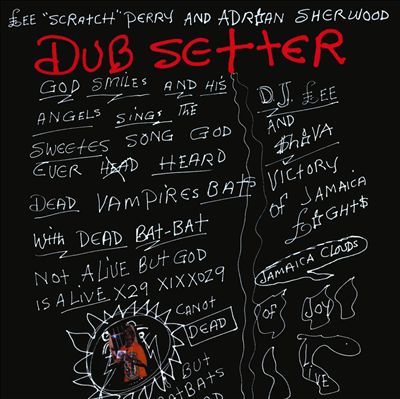 £EE "SCRATCH" PERRY AND ADRIAN SHERWOOD
DUB SETTER
GOD SMILES AND HIS
ANGELS SINGS THE
SWEETES SONG GOD
EVER HEARD
DEAD VAMPIRES BATS
WITH DEAD BAT-BAT
NOT ALIVE BUT GOD
IS ALIVE X29 XIXXOZ9
CANOT
DEAD
BUT
BATBATS
D.J. £EE
AND
$HIVA
VICTORY
OF JAMAICA
£IGHT$
JAMAICA CLOUDS
OF JOY
LIVE